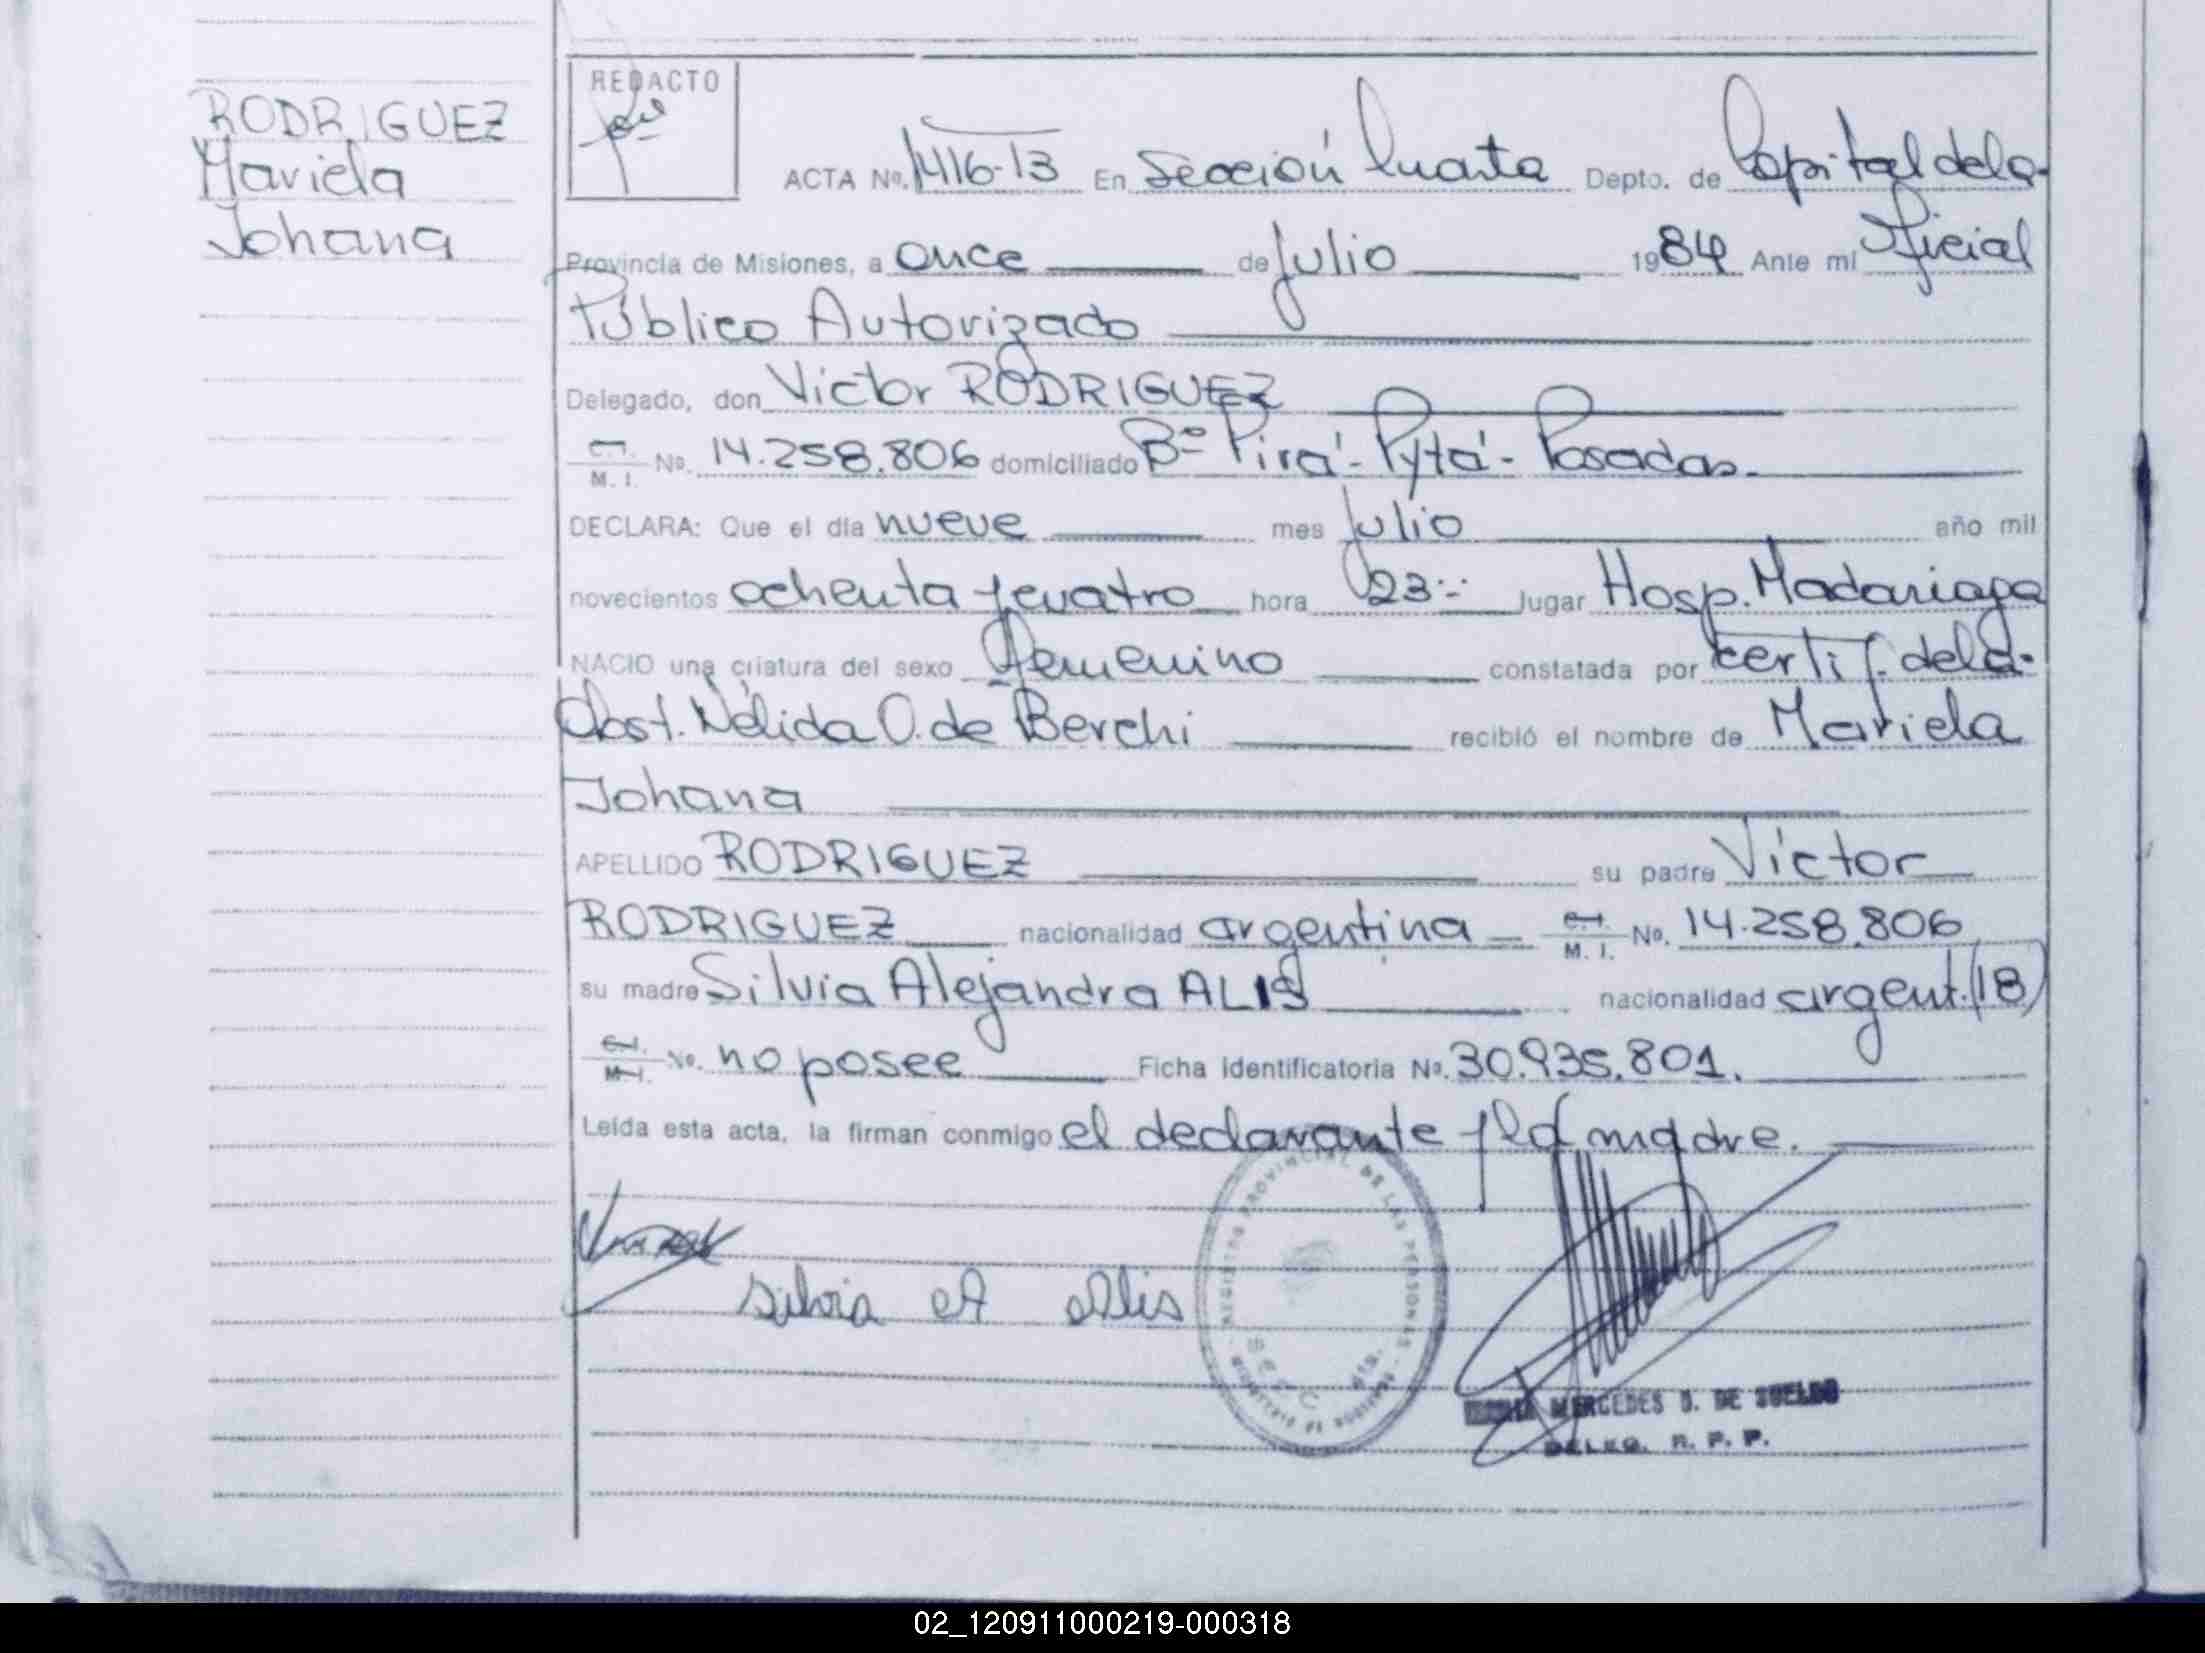 RODRIGUEZ
Mariela
Johana
REDACTO
ACTA Nº. 1416-13 En Sección Cuarta Depto. de Capital de la
Provincia de Misiones, a once de Julio 1984 Ante mi Oficial
Público Autorizado
Delegado, don Victor RODRIGUEZ
C.I. M. I. No. 14.258.806 domiciliado Bº Pirá-Pytá- Posadas.
DECLARA: Que el día nueve mes Julio año mil
novecientos ochenta y cuatro hora 23:- lugar Hosp. Madariaga
NACIO una criatura del sexo femenino constatada por certif. de la
Obst. Nélida O. de Berchi recibió el nombre de Mariela
Johana
APELLIDO RODRIGUEZ su padre Victor
RODRIGUEZ nacionalidad argentina C.I. M. I. No. 14.258.806
su madre Silvia Alejandra ALIS nacionalidad argent. (18)
C.I. M.I. No. no posee Ficha identificatoria Nº 30.935.801.
Leída esta acta, la firman conmigo el declarante y la madre.
Silvia A Alis
REGISTRO PROVINCIAL DE LAS PERSONAS
MERCEDES D. DE SUELDO
DELEG. R. P. P.
02_120911000219-000318